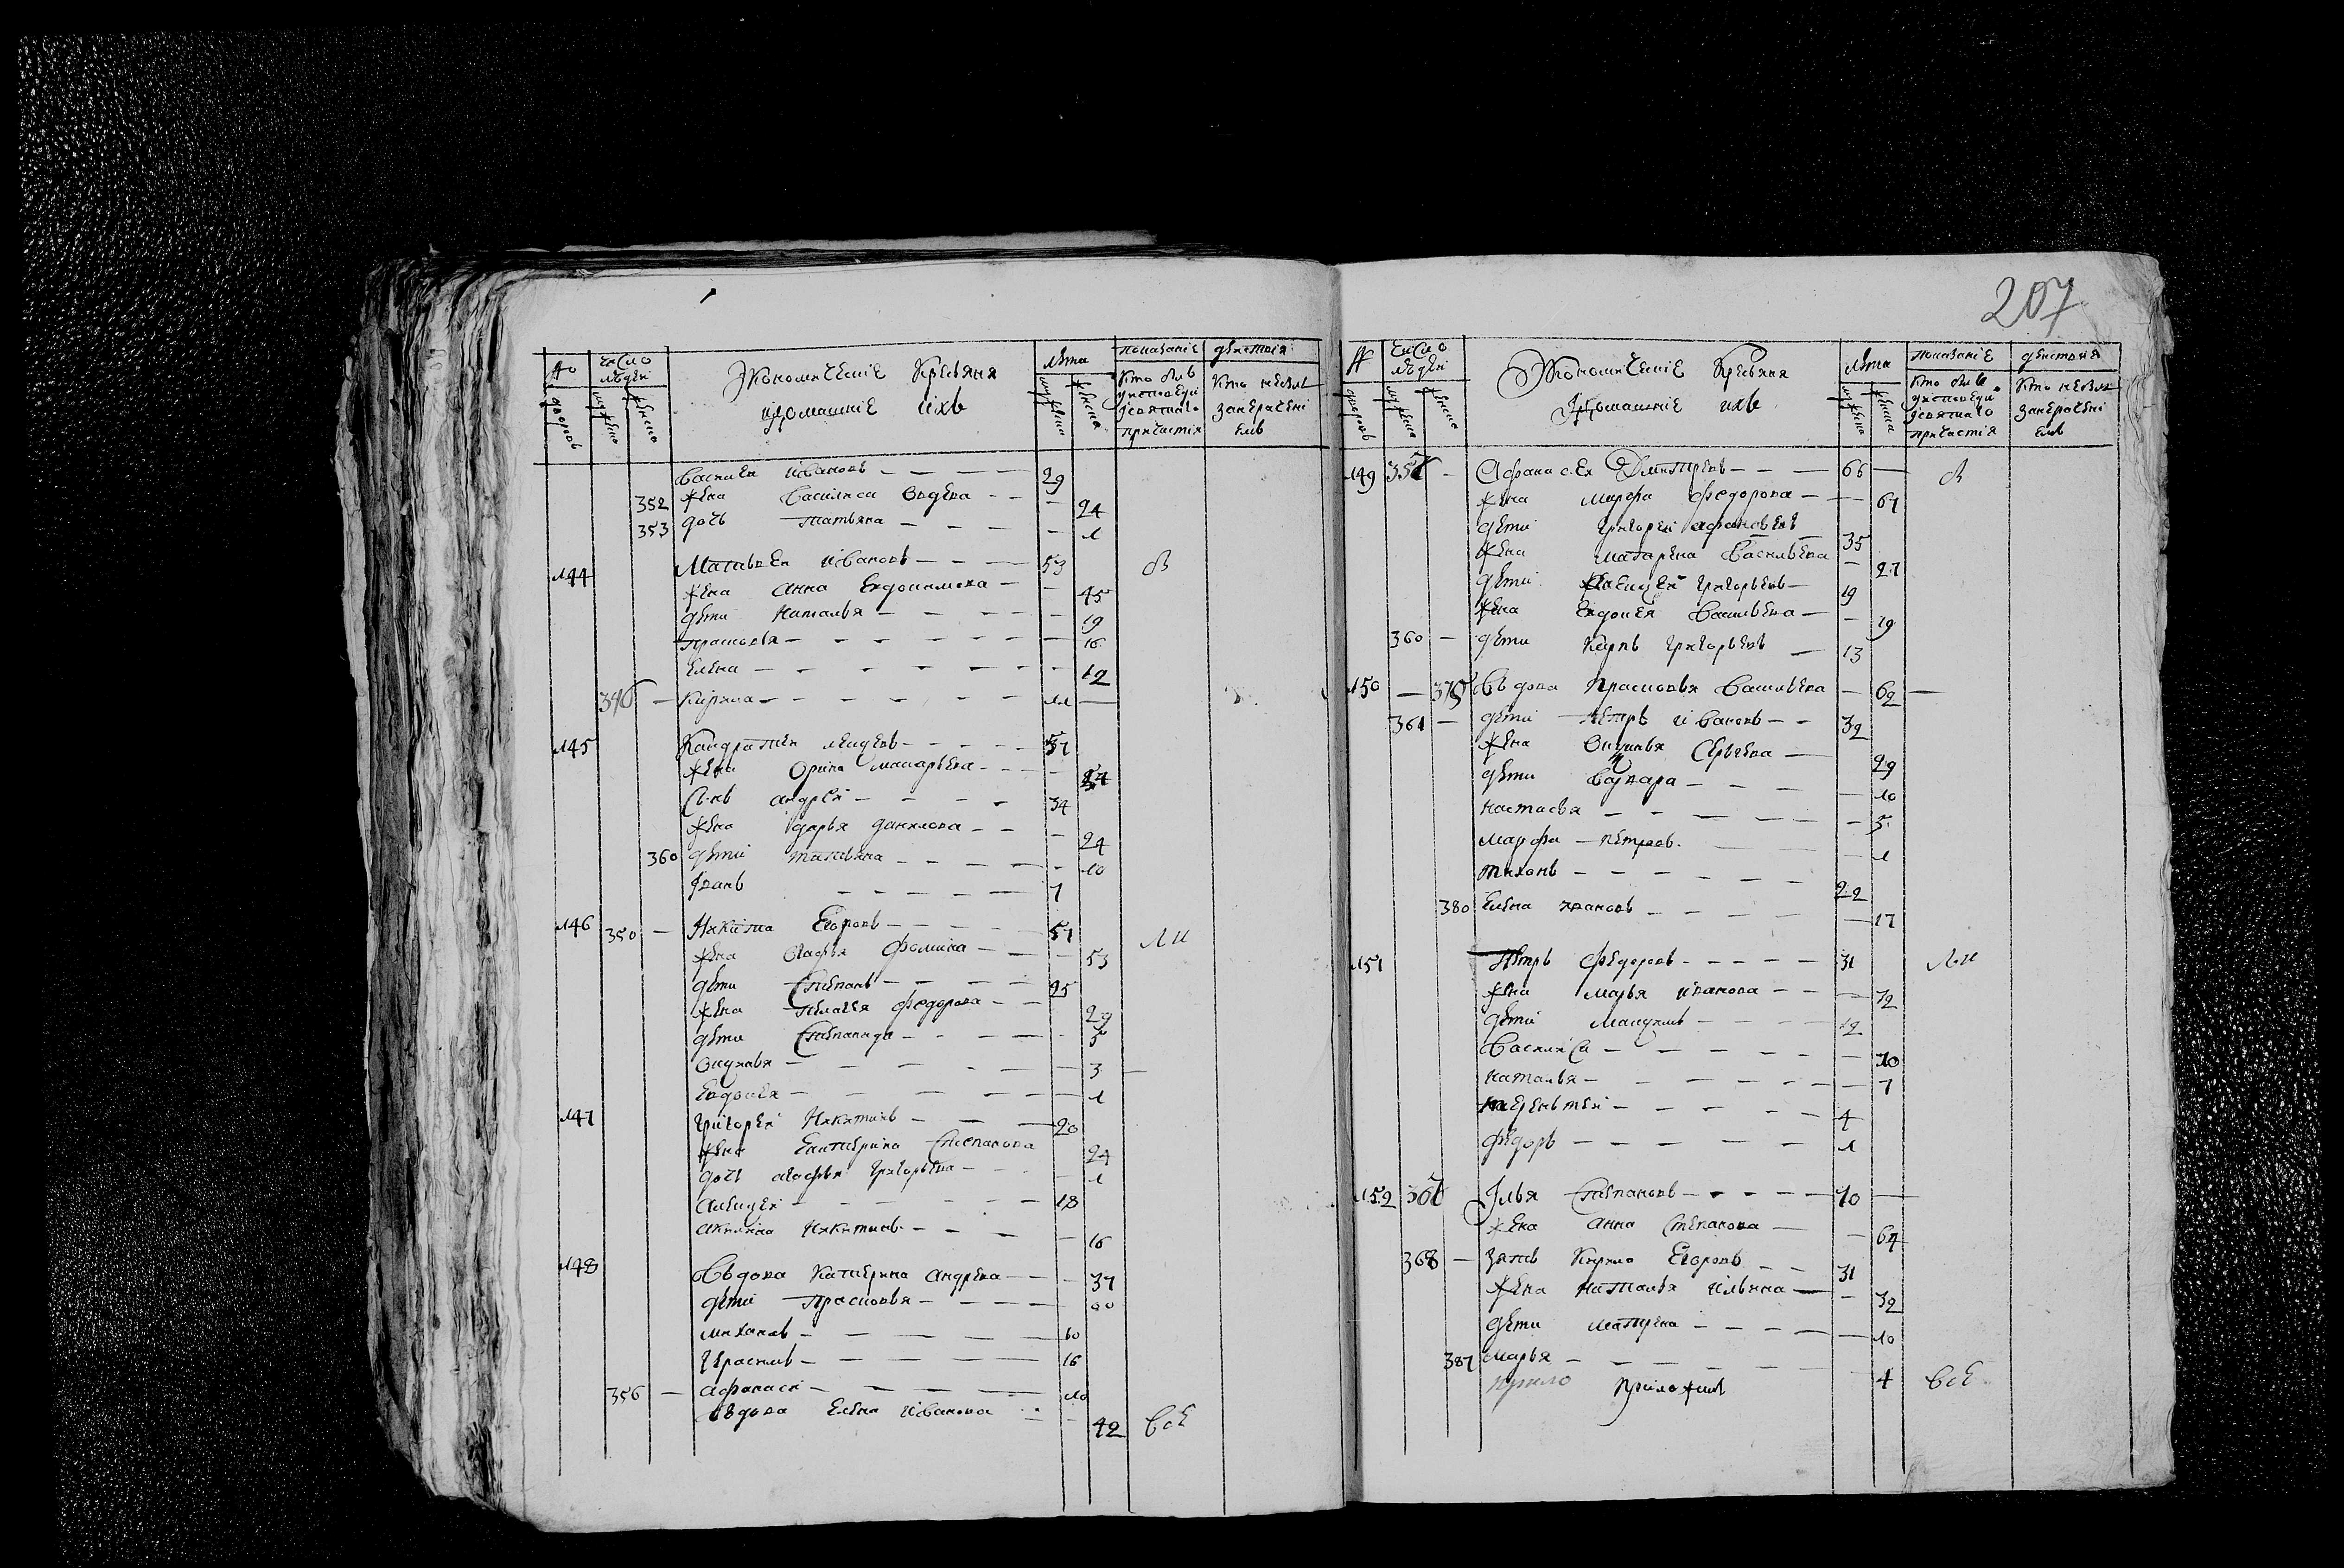 207
№ дворовъ
число людей
мужеска
женска
Экономическіе Крестьяня
и домашніе ихъ
лѣта
мужеска
женска
показаніе
Кто былъ
у исповеди
и святаго
причастія
действія
Кто не былъ
за нерачені
емъ
Василеи Ивановъ 29
352 жена Василиса Авдѣева 24
353 дочь Татьяна 1
144 Матвѣеи Ивановъ 53
жена Анна Евдокимова 45
дѣти Наталья 19
Прасковья 16
Елена 12
346 Кирила 11
145 Кондратеи 57
жена Орина Макарьева
Сынъ Андрѣй 34
жена Дарья Данилова 24
360 дѣти Татьяна 10
Іванъ 7
146 350 Никита Егоровъ 51
жена Агафья Фомина 53
дѣти Степанъ 25
жена Пелагея Федорова 29
дѣти Степанида 5
Окулавя 3
Евдокея 1
147 Григореи Никитинъ 20
жена Екатерина Степанова 24
дочь Агафья Григорьева 1
Алексеи 18
Акилина Никитина 16
148 Вдова Катерина Андрѣева 37
дѣти Прасковья 20
Михаилъ
Герасимъ 16
356 Афанасеи 10
Вдова Елена Иванова 42 всѣ
№ дворовъ
число людей
мужеска
женска
Экономическіе Крестьяня
И домашніе ихъ
лѣта
мужеска
женска
показаніе
Кто былъ
у исповеди
и святаго
причастія
действія
Кто не былъ
за нерачені
емъ
149 357 Афанасеи Дмитреевъ 66
жена Марфа Федорова 67
дѣти Григореи Афанасьевъ 35
жена Матрена Васильева 27
дѣти Алексеи Григорьевъ 19
жена Евдокея Васильева 19
360 дѣти Карпъ Григорьевъ 13
150 375 Вдова Прасковья Васильева 62
361 дѣти Петръ Ивановъ 32
жена Окулья Сергеева 29
дѣти Варвара 10
Настасья 5
Марфа Петровъ 1
Тихонъ 22
380 Елена Иванова 17
151 Петръ Федоровъ 31
жена Марья Иванова 32
дѣти 12
Василиса 10
Наталья 7
Терентеи 4
Федоръ 1
152 366 Илья Степановъ 70
жена Анна Степанова 64
368 зять Кирило Егоровъ 31
жена Наталья Ильина 32
дѣти Матрена 10
387 Марья 4 всѣ